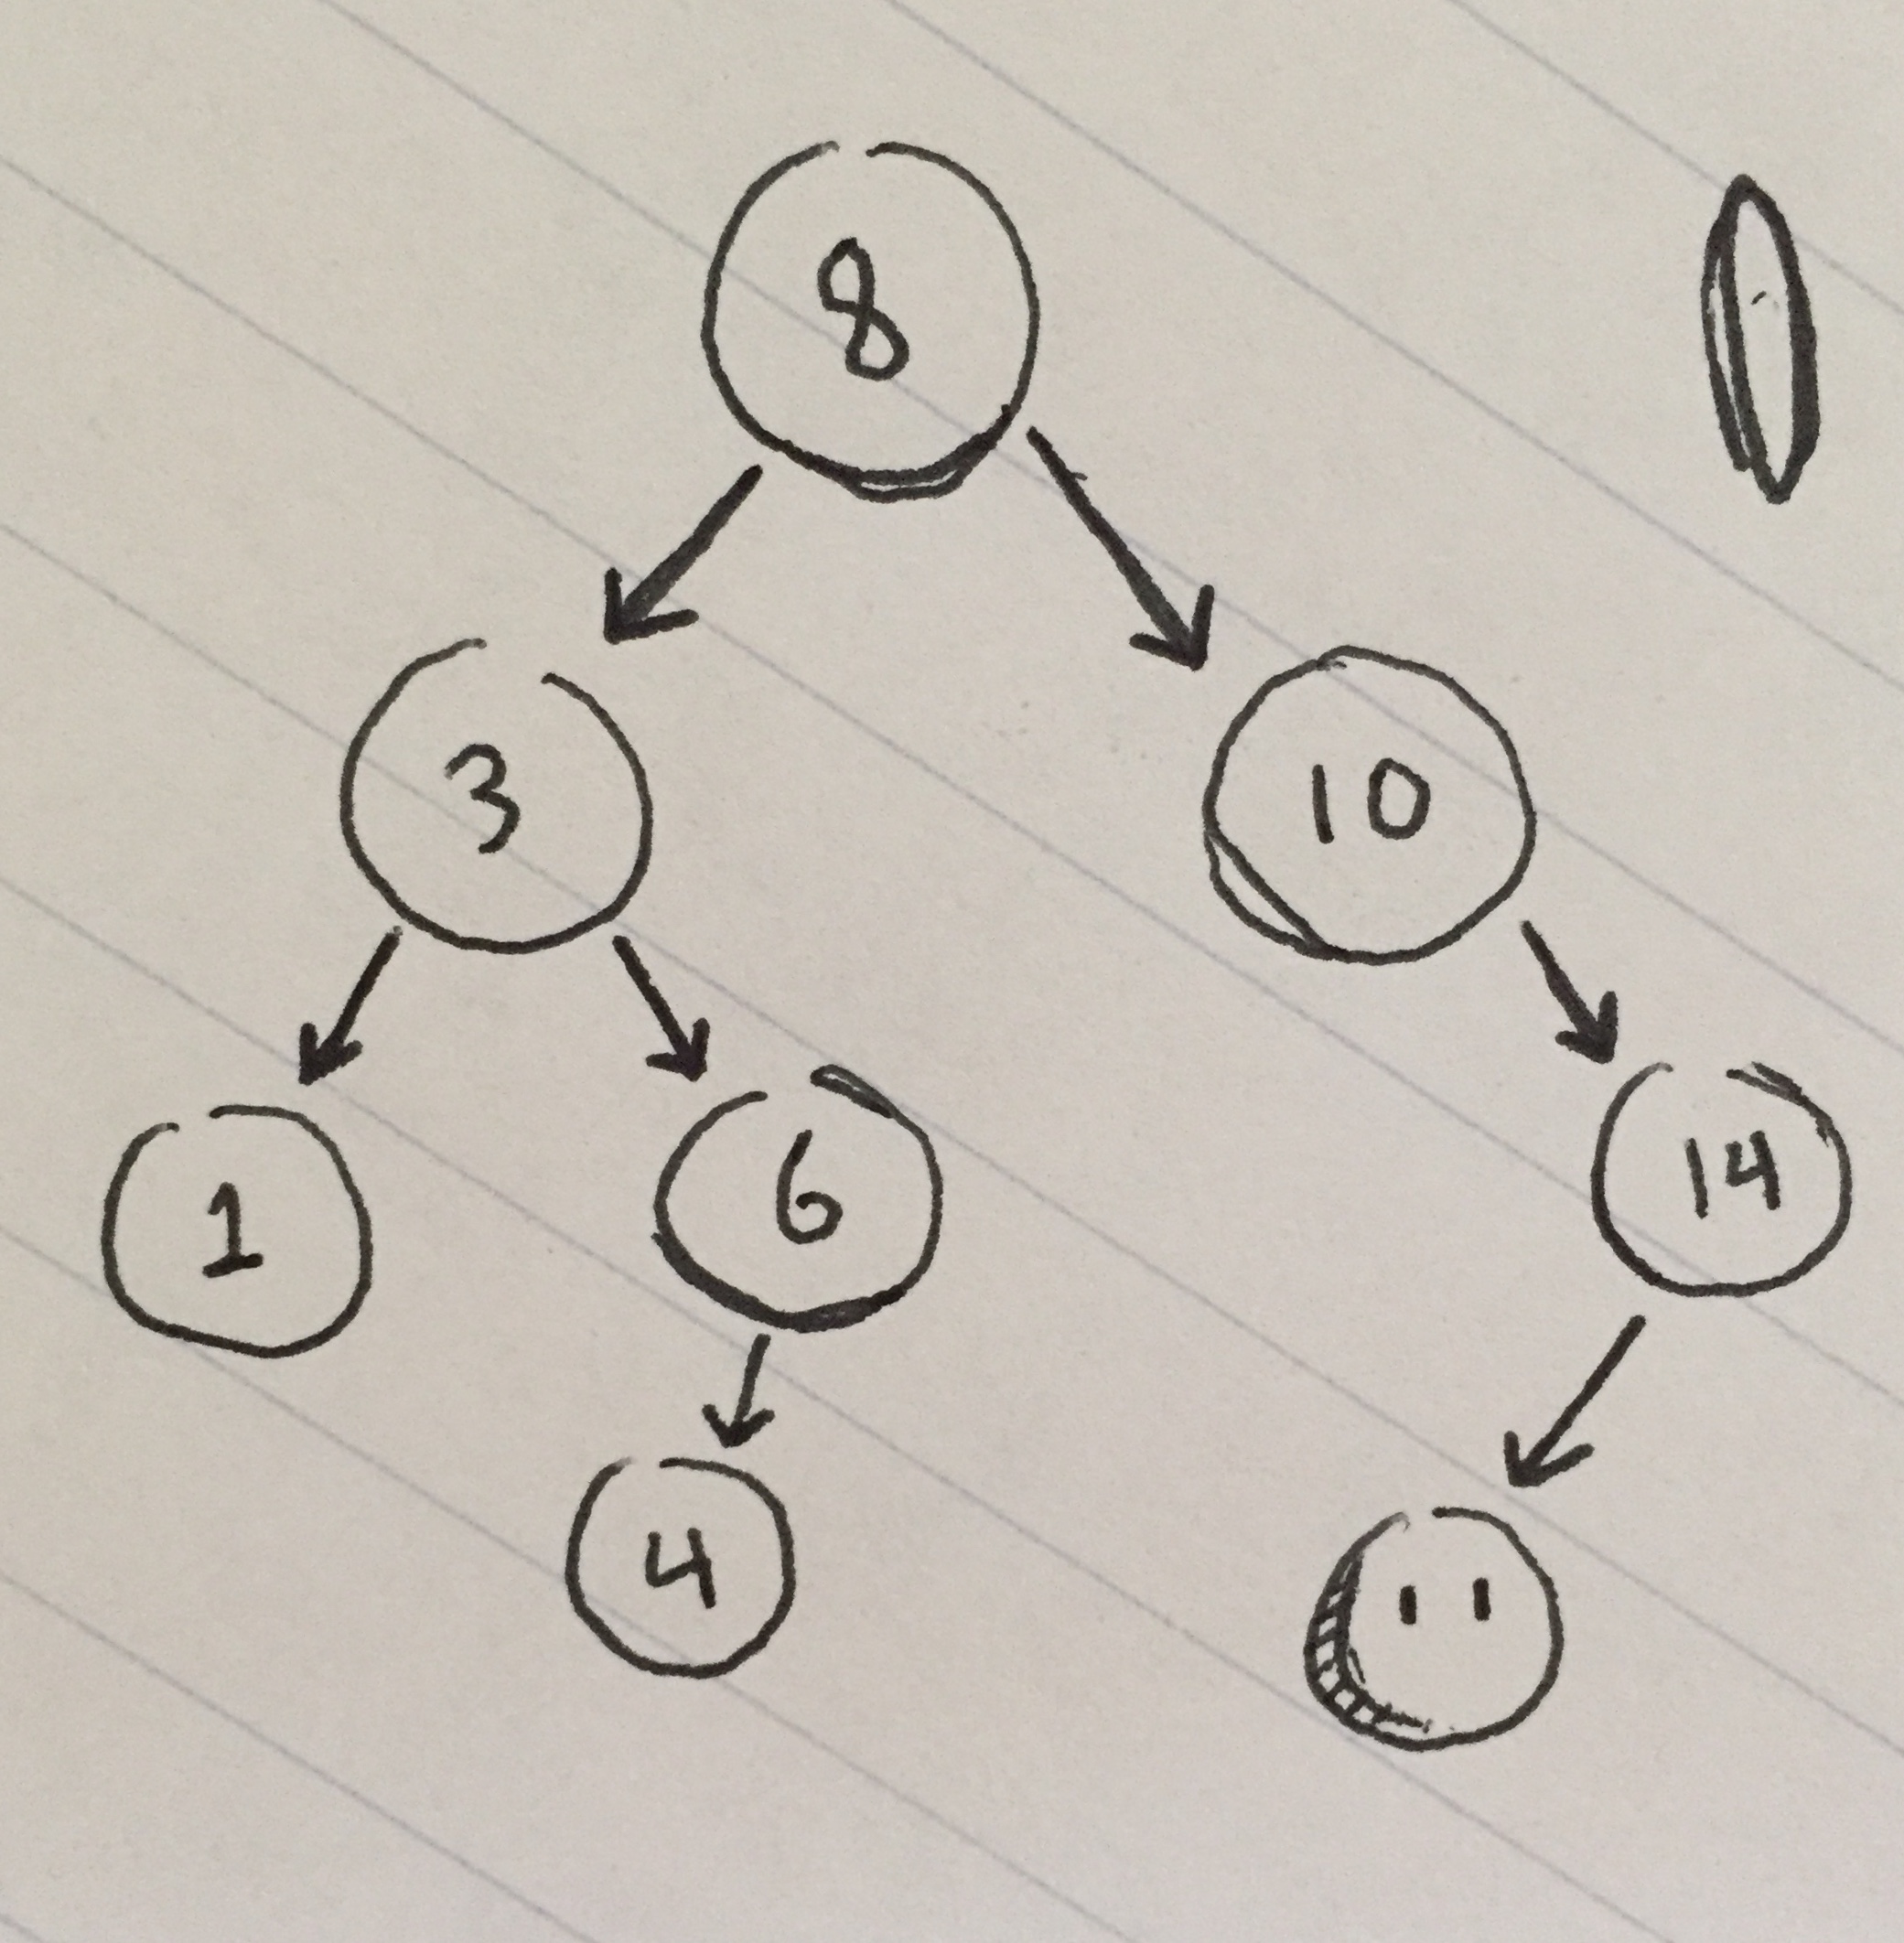 8
3 10
1 6 14
4 11